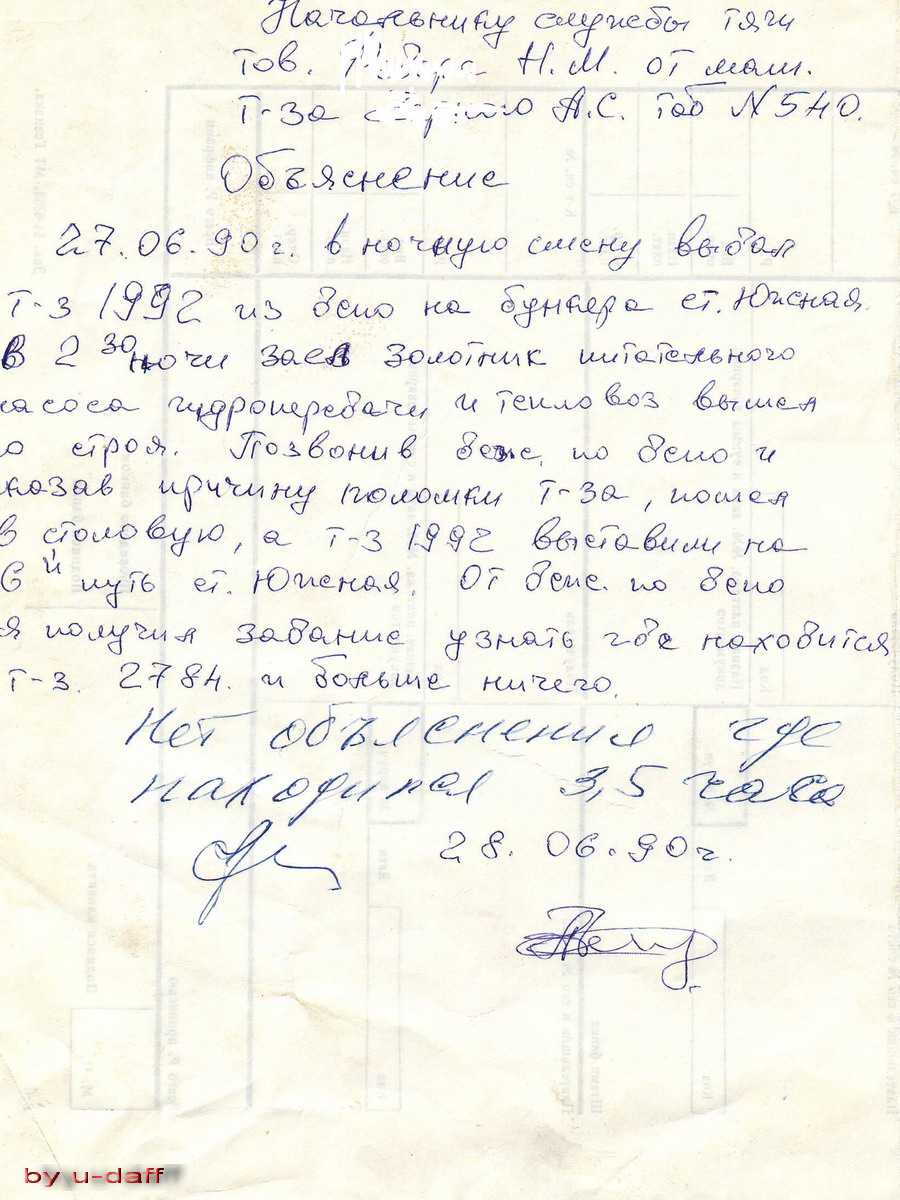 Начальнику службы тяги
тов. Н.М. от маш.
т-за А.С. таб N 540.
Объяснение
27.06.90г. в ночную смену выдал
т-з 1992 из депо на бункера ст. Южная.
в 2 30 ночи заел золотник питательного
насоса гидропередачи и тепловоз вышел
о строя. Позвонив деж. по депо и
казав причину поломки т-за, пошел
в столовую, а т-з 1992 выставили на
6й путь ст. Южная. От деж. по депо
я получил задание узнать где находится
т-з. 2784. и больше ничего.
Нет объяснения где
находился 3,5 часа
28. 06. 90г.
by u-daff